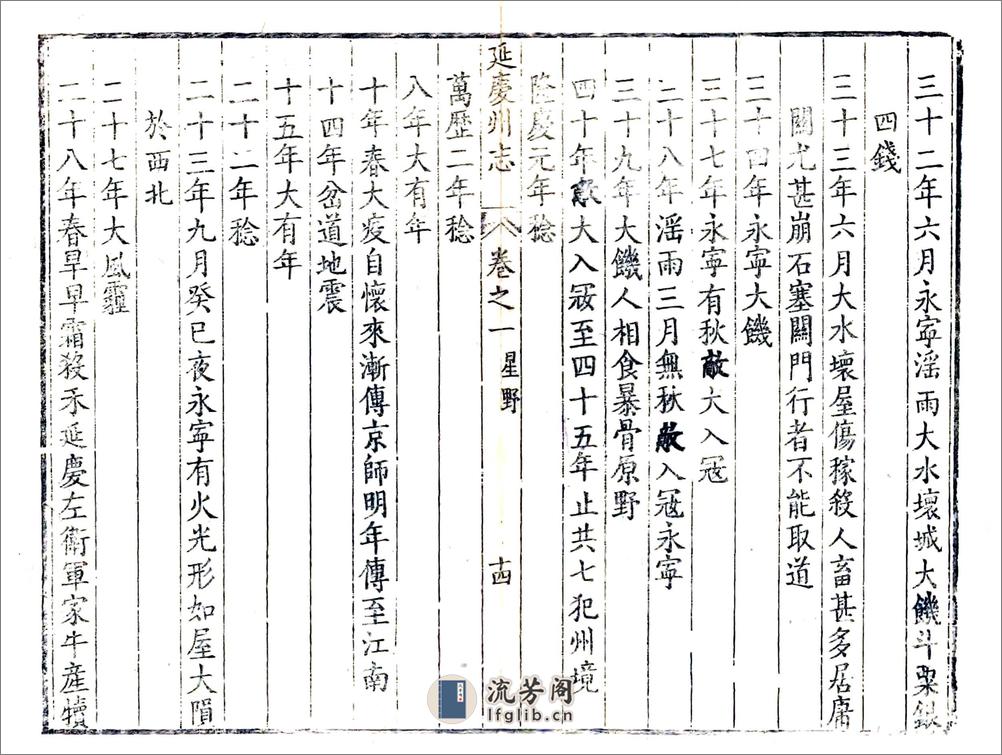 三十二年六月永寧滛雨大水壞城大饑斗粟銀
四錢
三十三年六月大水壞屋傷稼殺人畜甚多居庸
關尤甚崩石塞關門行者不能取道
三十四年永寧大饑
三十七年永寧有秋敵大入寇
三十八年滛雨三月無秋敵入寇永寧
三十九年大饑人相食暴骨原野
四十年敵大入寇至四十五年止共七犯州境
隆慶元年稔
延慶州志 卷之一 星野 十四
萬歷二年稔
八年大有年
十年春大疫自懷來漸傳京師明年傳至江南
十四年岔道地震
十五年大有年
二十二年稔
二十三年九月癸巳夜永寧有火光形如屋大隕
於西北
二十七年大風霾
二十八年春旱早霜殺禾延慶左衞軍家牛産犢
流芳阁
lfglib.cn